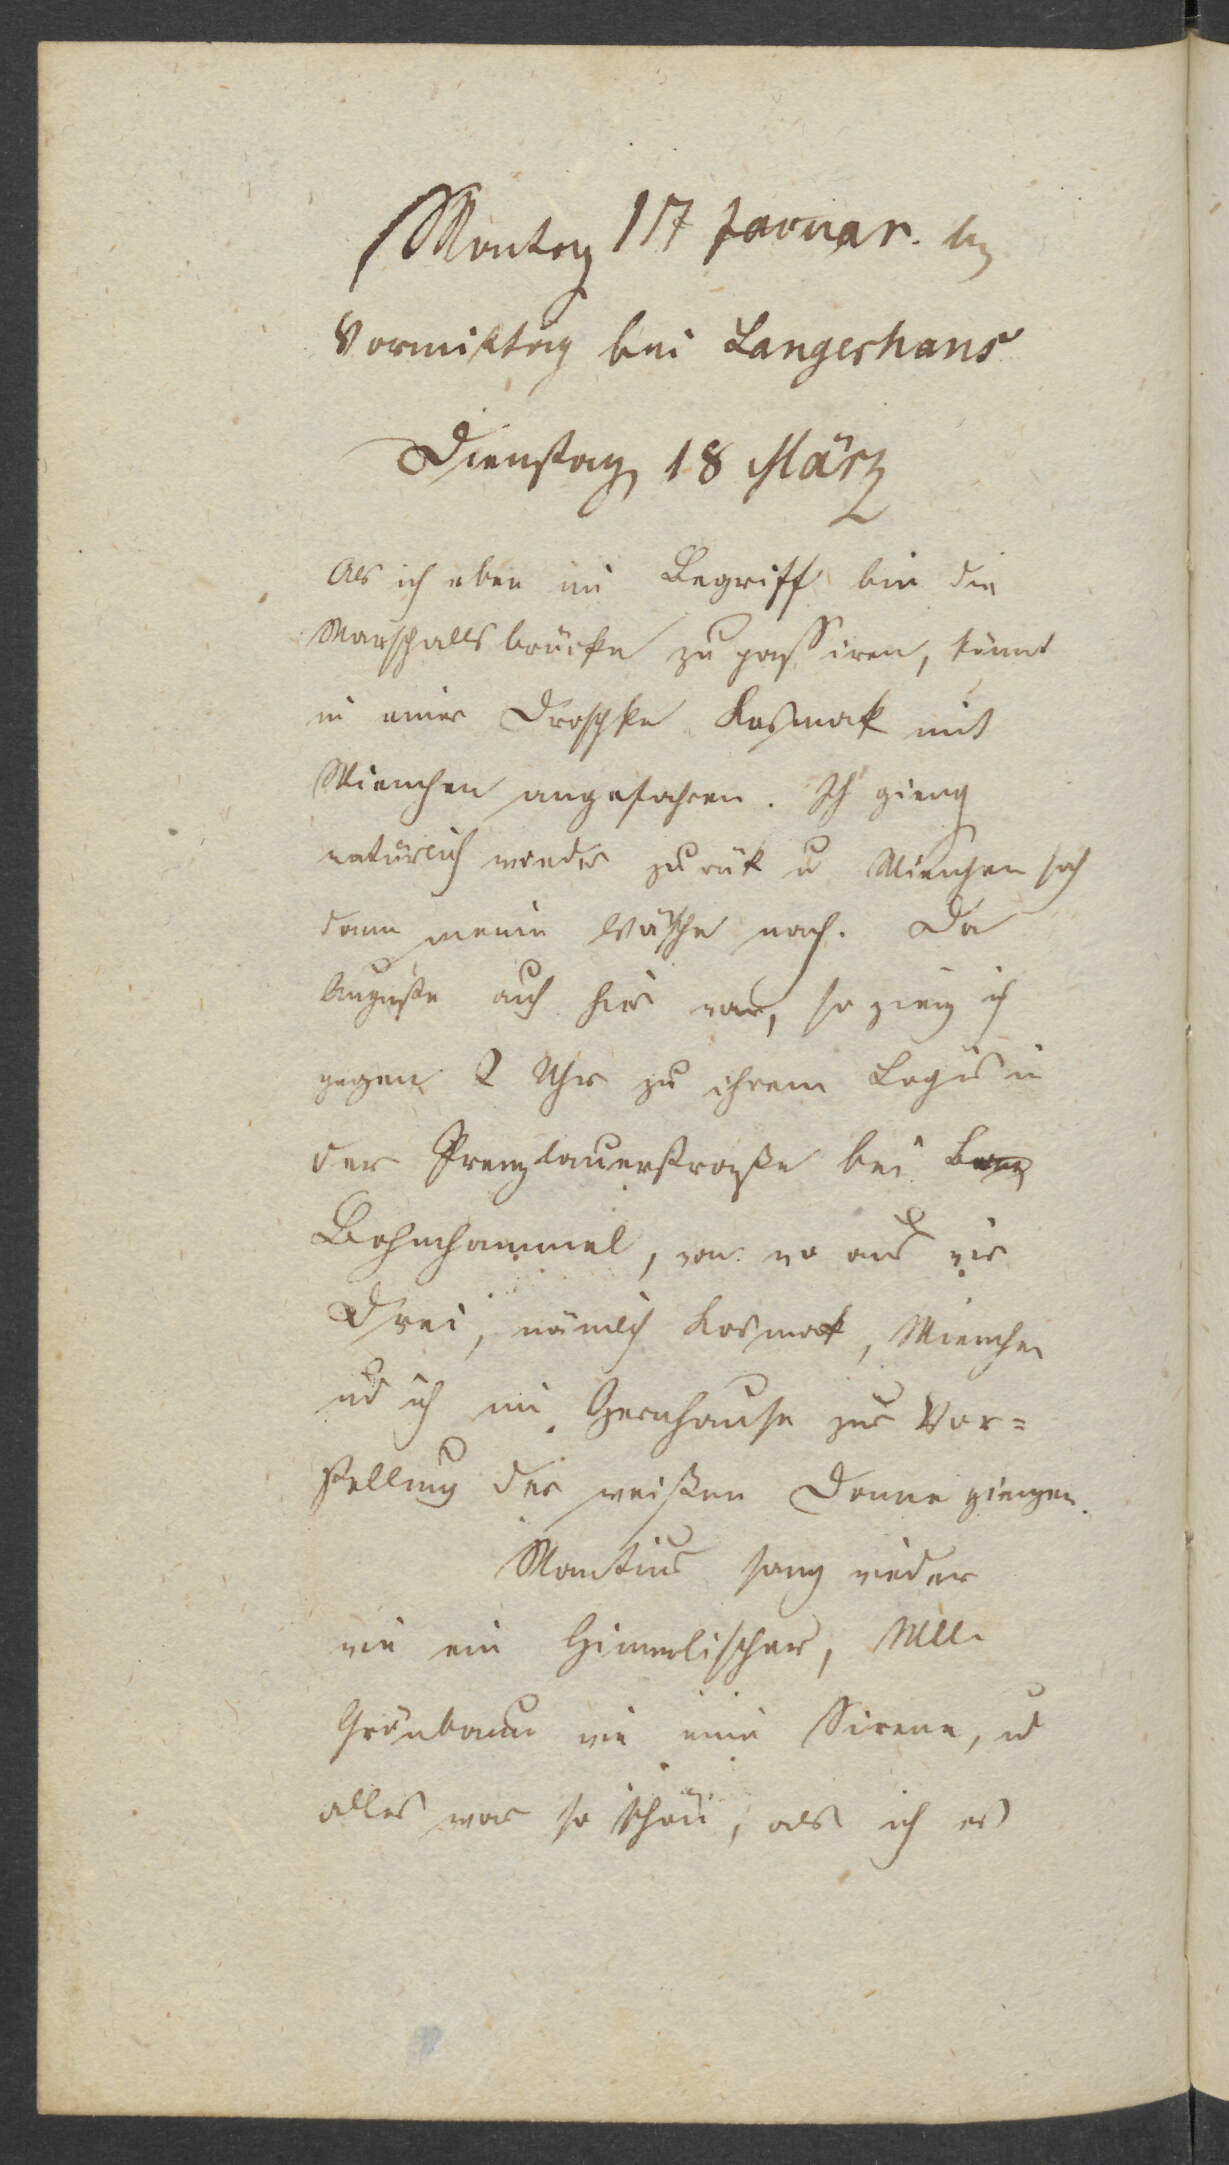 Montag 17 Januar.
Vormittag bei Langerhans
Dienstag 18 März
Als ich eben im Begriff bin die
Marschallsbrücke zu passiren, kömt
in einer Droschke Kosmak mit
Mienchen angefahren. Ich gieng
natürlich wieder zurük u Mienchen sah
dann meine Wäsche nach. Da
Auguste auch hier war, so gieng ich
gegen 2 Uhr zu ihrem Logis in
der Prenzlauerstraße bei
Bohnhammel, von wo aus wir
Drei, nämlich Kosmak, Mienchen
und ich im Opernhause zur Vor=
stellung der weißen Dame giengen.
Mantius sang wieder
wie ein Himmlischer, Mlle
Grünbaum wie eine Sirene, u
alles war so schön, als ich es